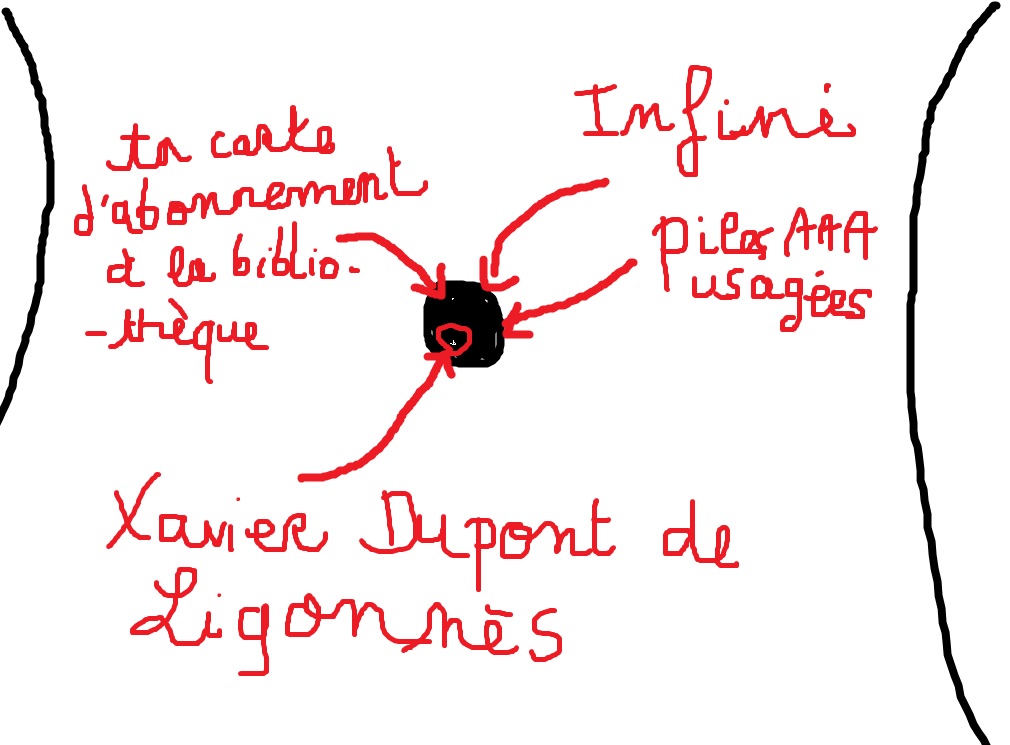 ta carte
d'abonnement
à la biblio-
-thèque
Infini
piles AAA
usagées
Xavier Dupont de
Ligonnès